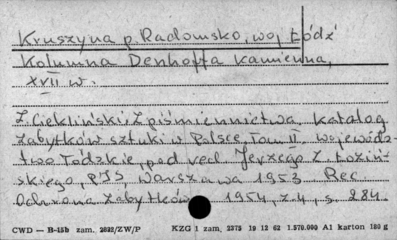 Kruszyna p. Radomsko, woj Łódź
Kolumna Denhoffa kamienna,
XVII w.
Z. Ciekliński: Z piśmiennictwa, Katalog
zabytków sztuki w Polsce, Tom II, wojewódz-
two Łódzkie, pod red. Jerzego Z. Łoziń-
skiego, PIS, Warszawa 1953 Rec.
Ochrona zabytków 1954, z.4, s. 284.
CWD — B-15b zam. 2892/ZW/P KZG 1 zam. 2373 19 12 62 1.570.000 A1 karton 180 g